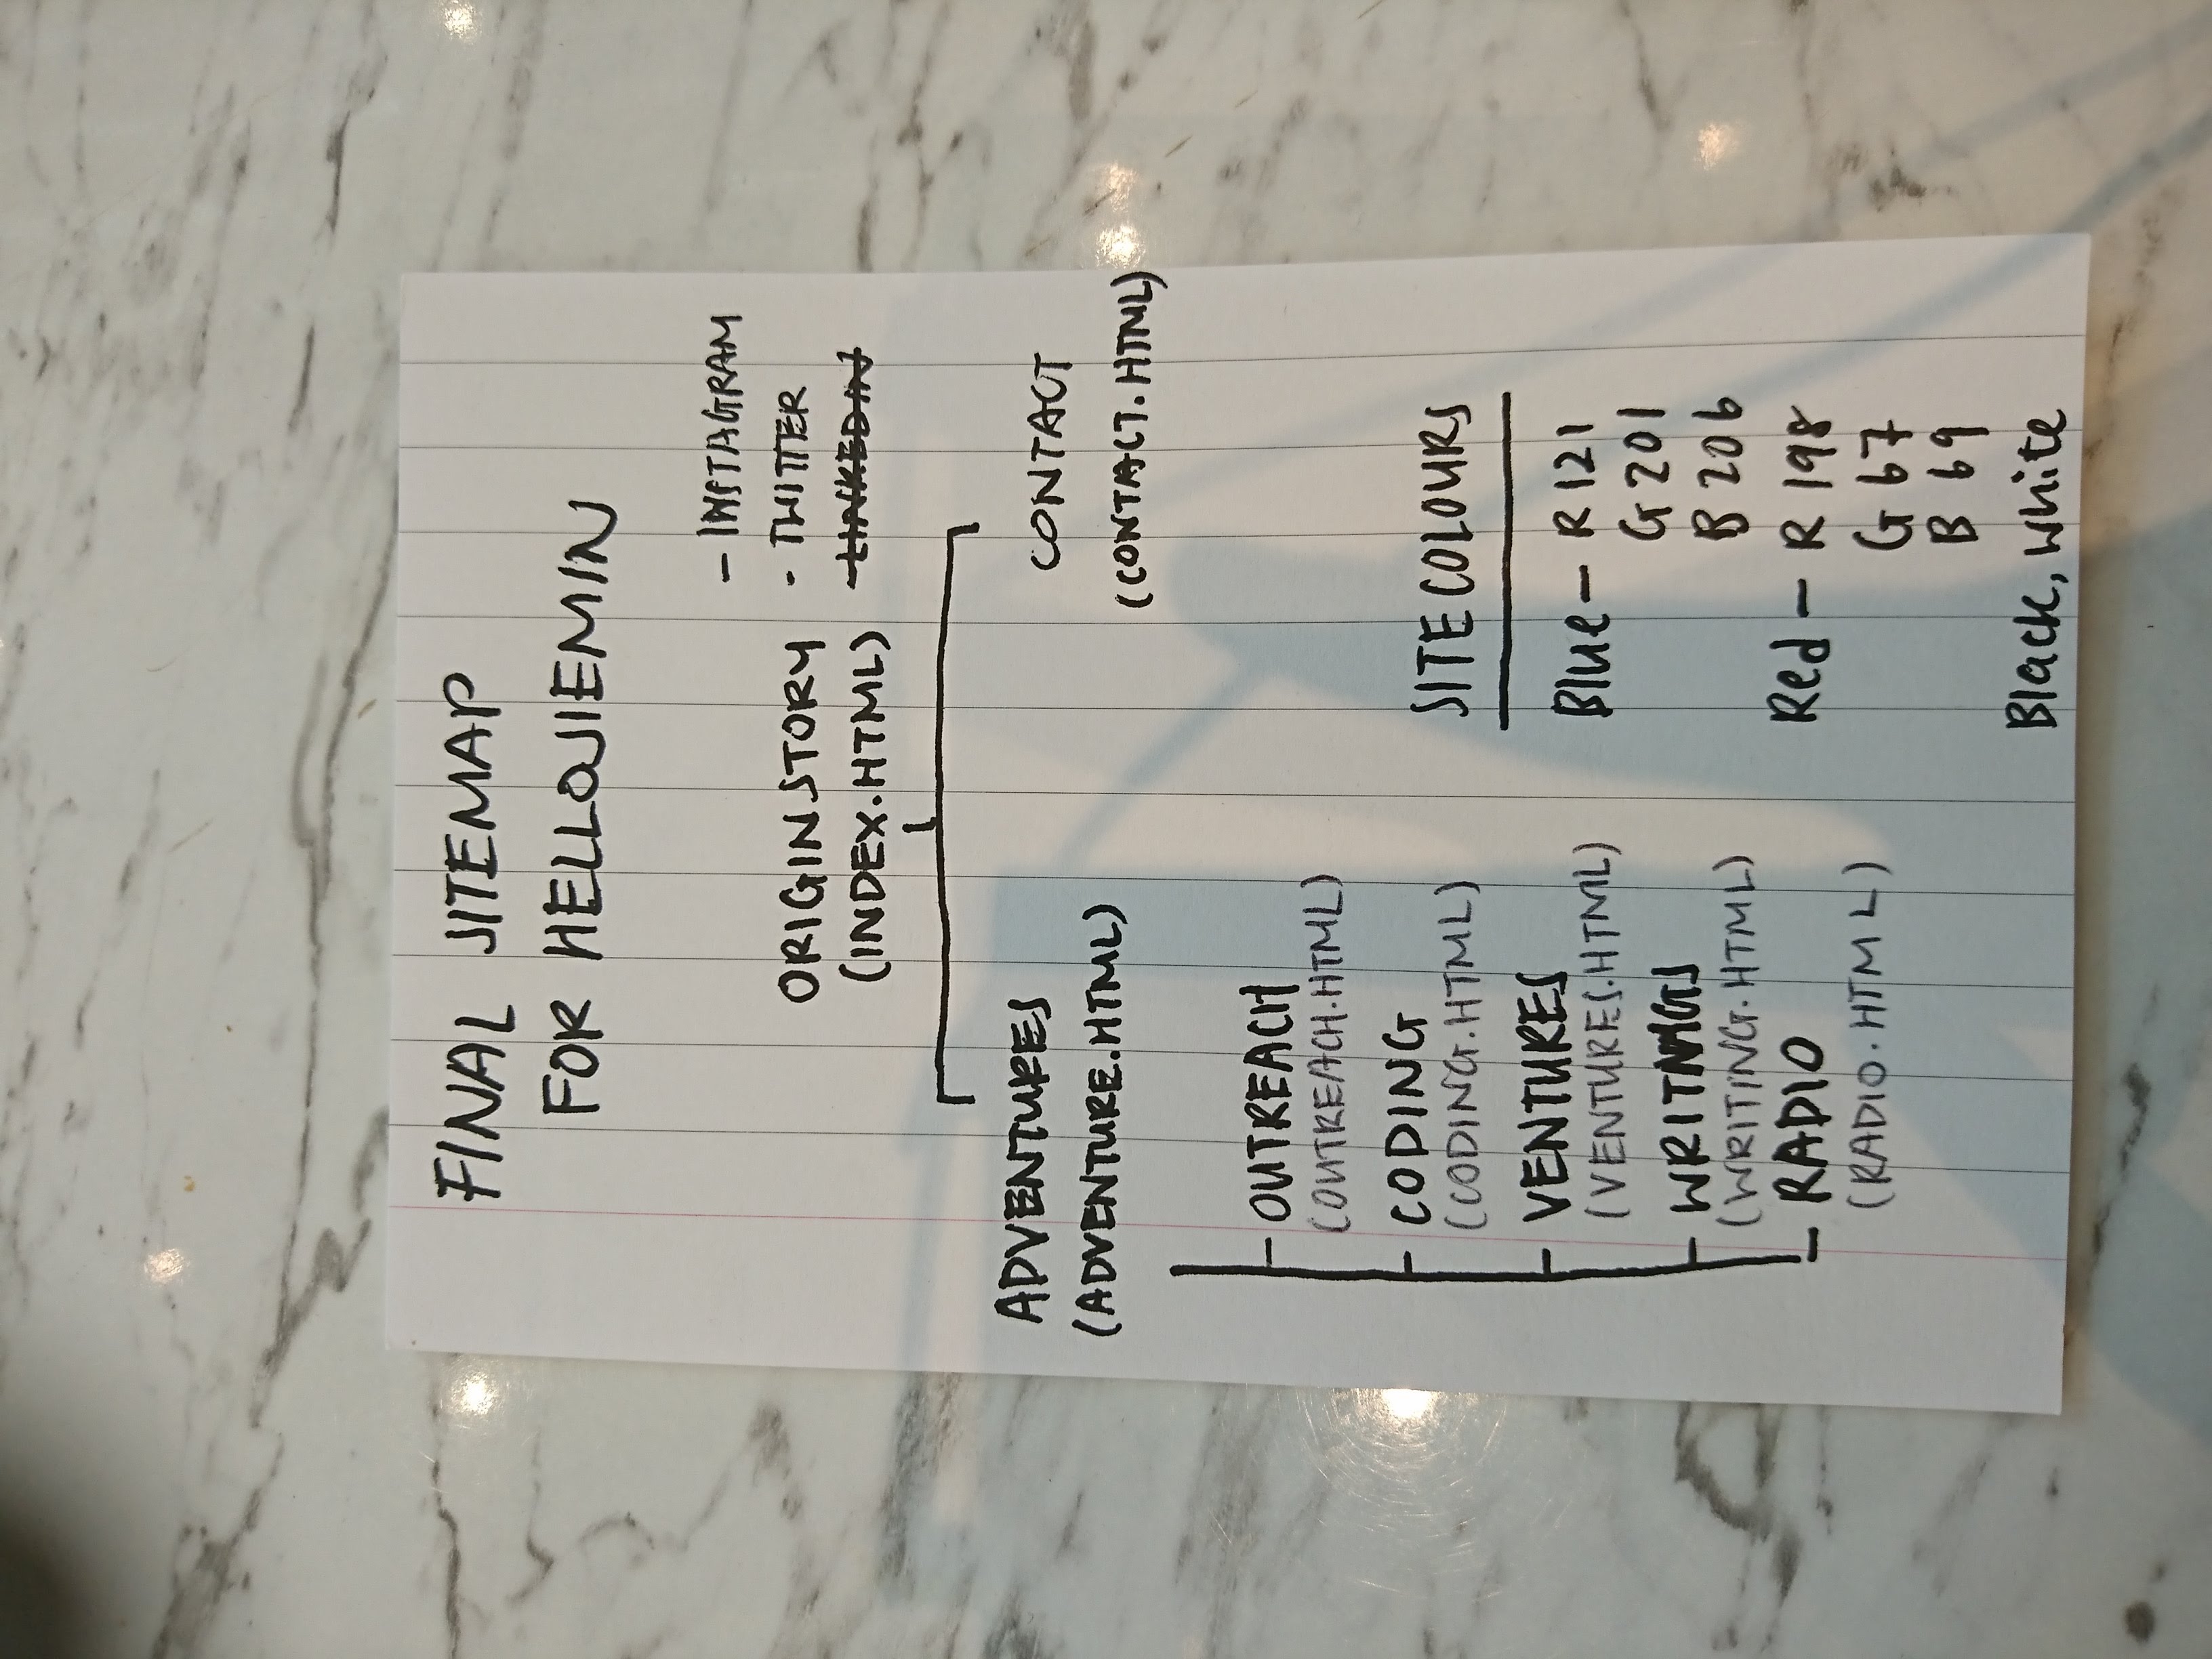 FINAL SITEMAP
FOR HELLOJIEMIN
- INSTAGRAM
ORIGIN STORY · TWITTER
(INDEX.HTML) - LINKEDIN
ADVENTURES CONTACT
(ADVENTURE.HTML) (CONTACT.HTML)
- OUTREACH
(OUTREACH.HTML)
- CODING
(CODING.HTML)
- VENTURES
(VENTURES.HTML)
- WRITINGS
(WRITING.HTML)
- RADIO
(RADIO.HTML)
SITE COLOURS
Blue - R 121
G 201
B 206
Red - R 198
G 67
B 69
Black, White